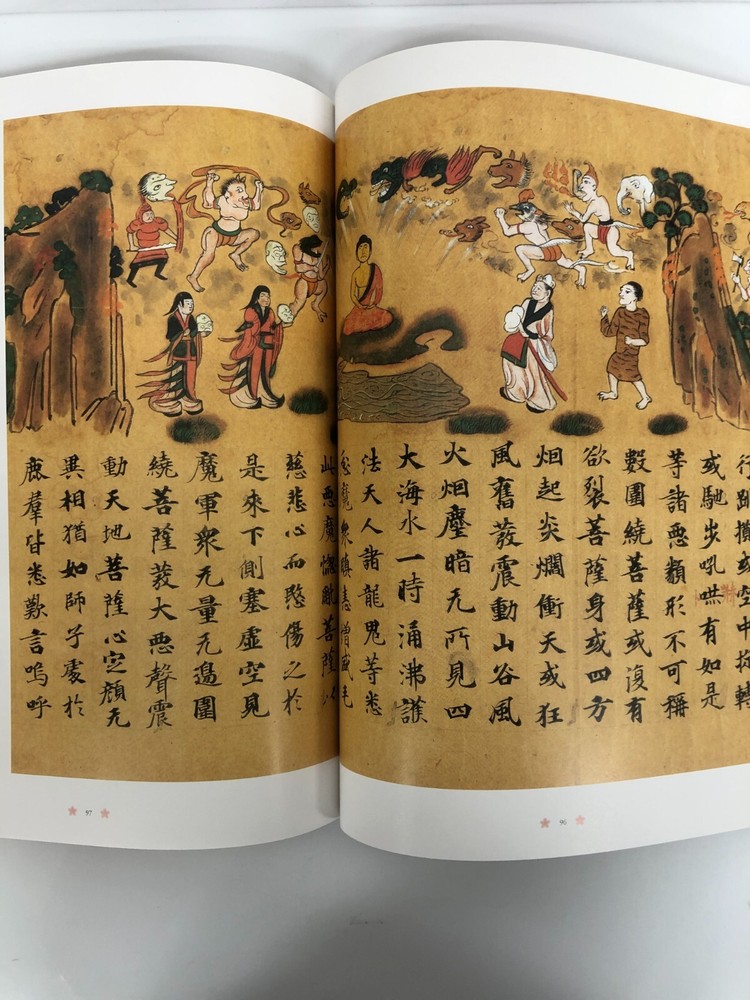 行跳擲或空中旋轉
或馳步吼哮有如是
等諸惡類形不可稱
數圍繞菩薩或復有
欲裂菩薩身或四方
烟起炎爓衝天或狂
風奮發震動山谷風
火烟塵暗无所見四
大海水一時涌沸護
法天人諸龍鬼等悉
魔衆瞋恚增盛毛
此惡魔惱亂菩薩
慈悲心而愍傷之於
是來下側塞虛空見
魔軍衆无量无邊圍
繞菩薩發大惡聲震
動天地菩薩心定顏无
異相猶如師子處於
鹿羣皆悉歎言嗚呼
96
97